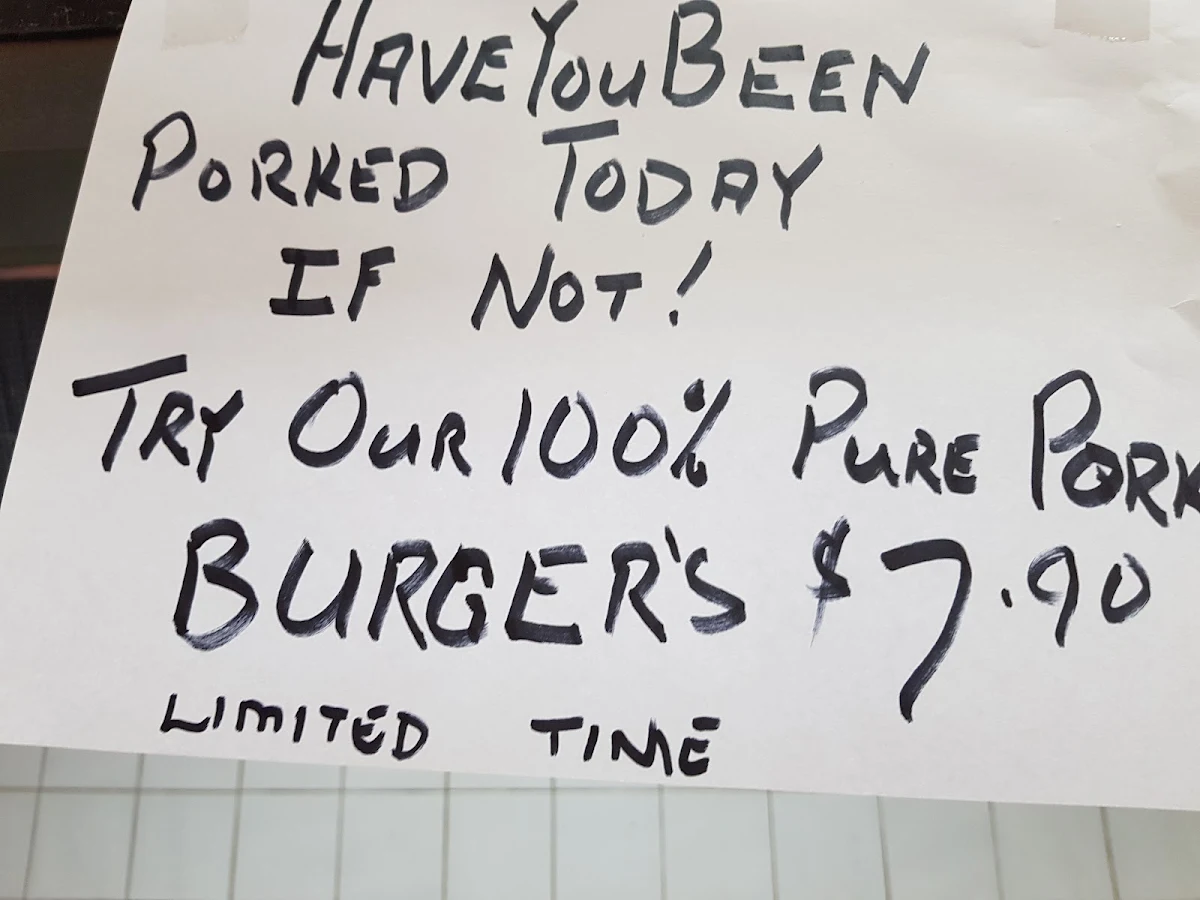 HAVE YOU BEEN
PORKED TODAY
IF NOT!
TRY OUR 100% PURE PORK
BURGER'S $7.90
LIMITED TIME